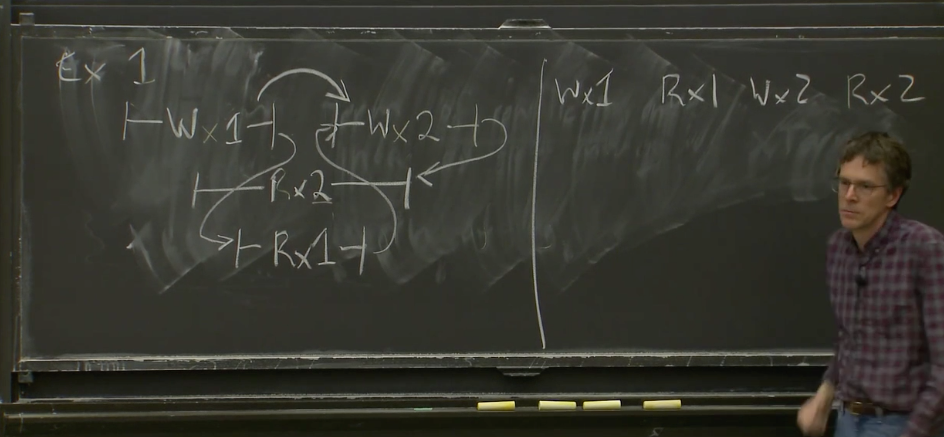 Ex 1
Wx1 Wx2
Rx2
Rx1
Wx1 Rx1 Wx2 Rx2